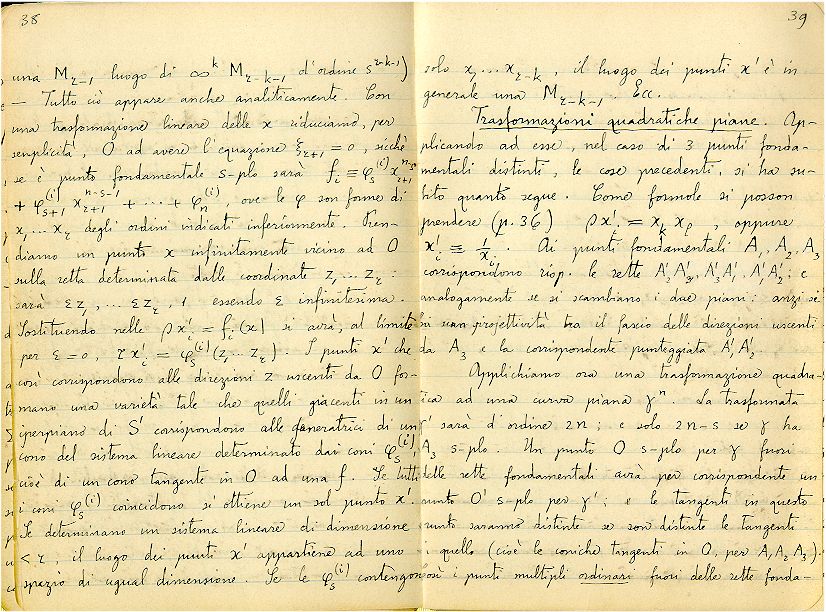 38
una M_{r-1} luogo di ∞^k M_{r-k-1} d'ordine s^{r-k-1})
— Tutto ciò appare anche analiticamente. Con
una trasformazione lineare delle x riduciamo, per
semplicità, O ad avere l'equazione ξ_{r+1} = 0, sicchè
se è punto fondamentale s-plo sarà f_i ≡ φ_s^{(i)} x_{r+1}^{n-s}
+ φ_{s+1}^{(i)} x_{r+1}^{n-s-1} + ··· + φ_n^{(i)}, ove le φ son forme di
x_1 ... x_r degli ordini indicati inferiormente. Pren-
diamo un punto x infinitamente vicino ad O
sulla retta determinata dalle coordinate z_1 ... z_r :
sarà εz_1, ... εz_r, 1 essendo ε infinitesima.
Sostituendo nelle ρx'_i = f_i(x) si avrà, al limite
per ε = 0, τx'_i = φ_s^{(i)}(z_1 ... z_r). I punti x' che
così corrispondono alle direzioni z uscenti da O for-
mano una varietà tale che quelli giacenti in un
iperpiano di S' corrispondono alle generatrici di un
cono del sistema lineare determinato dai coni φ_s^{(i)},
cioè di un cono tangente in O ad una f. Se tutti
i coni φ_s^{(i)} coincidono si ottiene un sol punto x'.
Se determinano un sistema lineare di dimensione
< r, il luogo dei punti x' appartiene ad uno
spazio di ugual dimensione. Se le φ_s^{(i)} contengon
39
solo x_1 ... x_{r-k}, il luogo dei punti x' è in
generale una M_{r-k-1}. Ecc.
Trasformazioni quadratiche piane. Ap-
plicando ad esse, nel caso di 3 punti fonda-
mentali distinti, le cose precedenti, si ha su-
bito quanto segue. Come formole si posson
prendere (p. 36) ρx'_i = x_k x_l, oppure
x'_i ≡ 1/x_i. Ai punti fondamentali A_1, A_2, A_3
corrispondono risp. le rette A'_2A'_3, A'_3A'_1, A'_1A'_2 ; e
analogamente se si scambiano i due piani: anzi si
projettività tra il fascio delle direzioni uscenti
da A_3 e la corrispondente punteggiata A'_1A'_2.
Applichiamo ora una trasformazione quadra-
tica ad una curva piana γ^n. La trasformata
γ' sarà d'ordine 2n ; e solo 2n-s se γ ha
A_3 s-plo. Un punto O s-plo per γ fuori
delle rette fondamentali avrà per corrispondente un
punto O' s-plo per γ' ; e le tangenti in questo
punto saranno distinte se son distinte le tangenti
quello (cioè le coniche tangenti in O, per A_1 A_2 A_3).
Così i punti multipli ordinari fuori delle rette fonda-